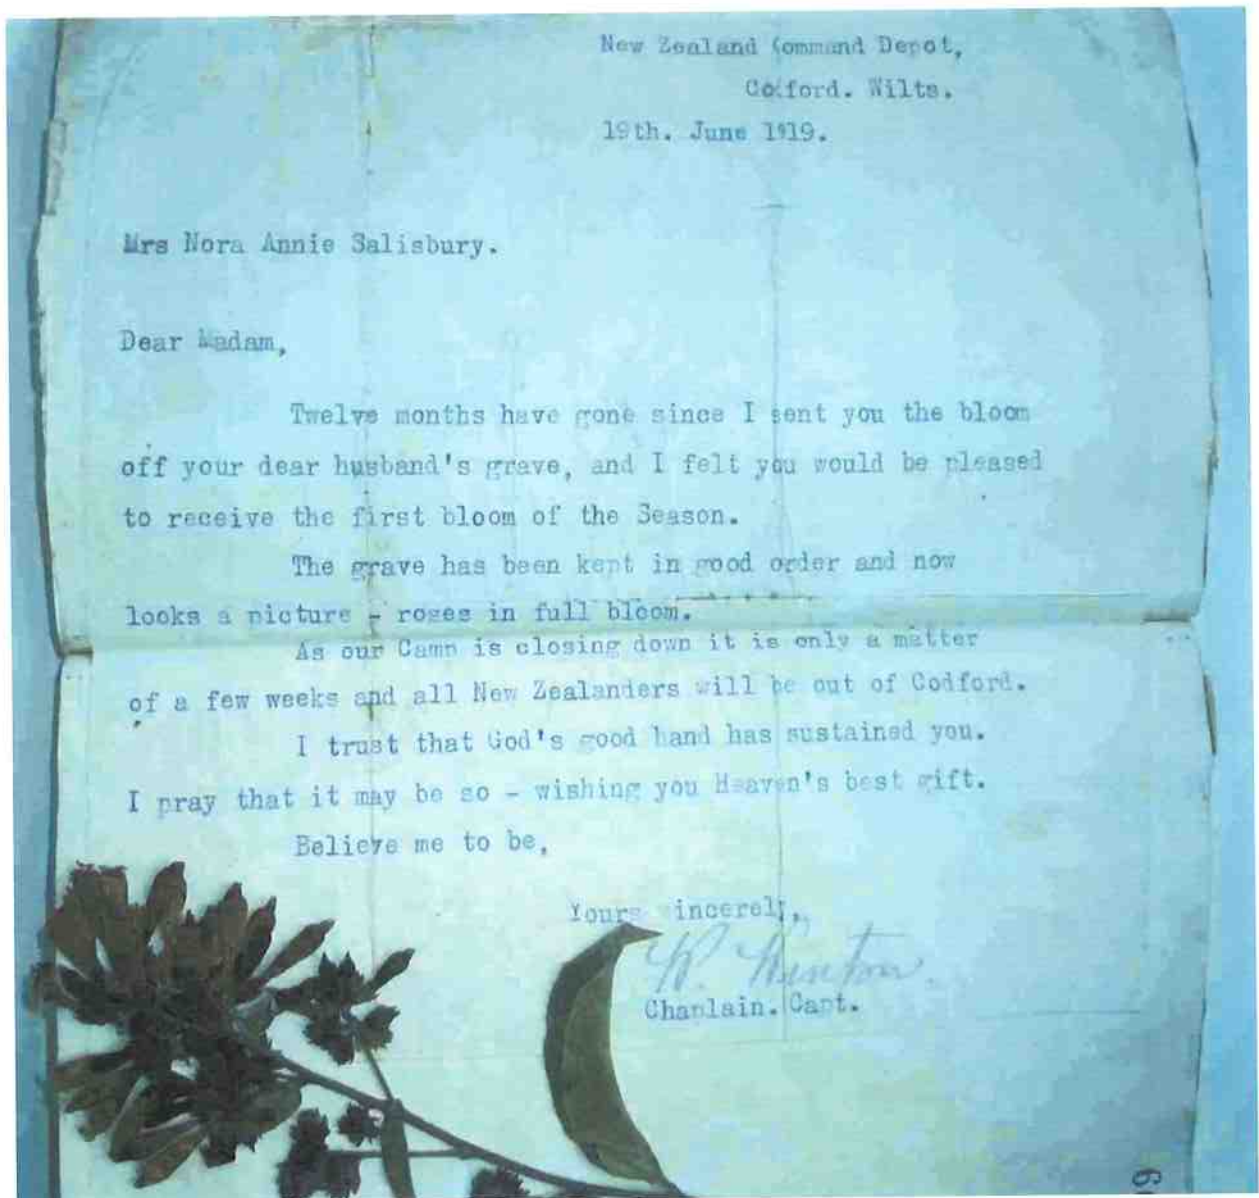 New Zealand Command Depot,
Codford. Wilts.
19th. June 1919.
Mrs Nora Annie Salisbury.
Dear Madam,
Twelve months have gone since I sent you the bloom
off your dear husband's grave, and I felt you would be pleased
to receive the first bloom of the Season.
The grave has been kept in good order and now
looks a picture - roses in full bloom.
As our Camp is closing down it is only a matter
of a few weeks and all New Zealanders will be out of Codford.
I trust that God's good hand has sustained you.
I pray that it may be so - wishing you Heaven's best gift.
Believe me to be,
Yours sincerely,
W.
Chaplain. Capt.